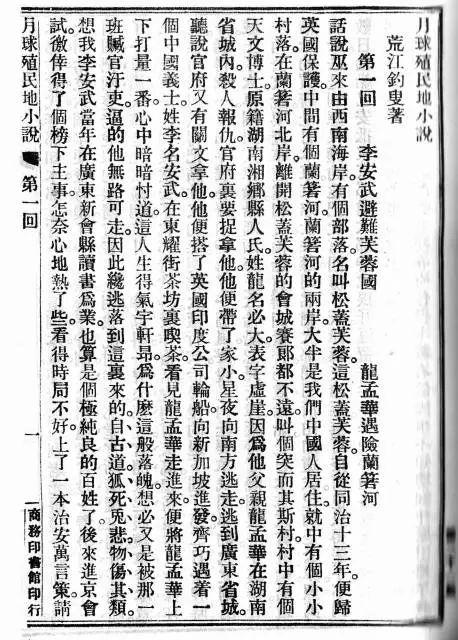 月球殖民地小說
荒江釣叟著
第一回　李安武避難芙蓉國　龍孟華遇險蘭箸河
話說巫來由西南海岸。有個部落。名叫松蓋芙蓉。這松蓋芙蓉。自從同治十三年。便歸
英國保護。中間有個蘭箸河。蘭箸河的兩岸。大半是我們中國人居住。就中有個小小
村落。在蘭箸河北岸。離開松蓋芙蓉的會城賽郎都不遠。叫個突而其斯村。村中有個
天文博士。原籍湖南湘鄉縣人氏。姓龍名必大。表字虛崖。因爲他父親龍孟華在湖南
省城內殺人報仇。官府裏要捉拿他。他便帶了家小。星夜向南方逃走。逃到廣東省城。
聽說官府又有關文拿他。他便搭了英國印度公司輪船。向新加坡進發。齊巧遇着一
個中國義士。姓李名安武。在東耀街茶坊裏喫茶。看見龍孟華走進來。便將龍孟華上
下打量一番。心中暗暗忖道。這人生得氣宇軒昂。爲什麽這般落魄。想必又是被那一
班贓官汙吏。逼的他無路可走。因此纔逃落到這裏來的。自古道。狐死兎悲。物傷其類。
想我李安武當年在廣東新會縣讀書爲業。也算是個極純良的百姓了。後來進京會
試。徼倖得了個榜下主事。怎奈心地熱了些。看得時局不好。上了一本治安萬言策。請
月球殖民地小說　第一回　一　商務印書館印行